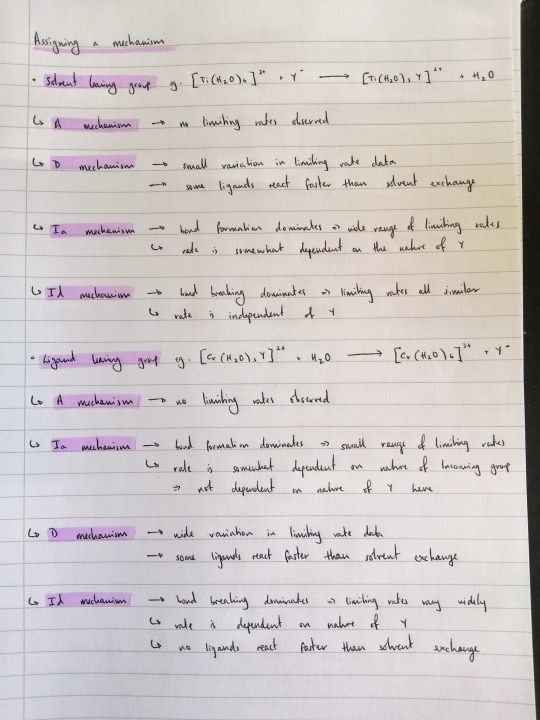 Assigning a mechanism
• Solvent leaving group eg. [Ti(H2O)6]3+ + Y- → [Ti(H2O)5Y]2+ + H2O
↳ A mechanism → no limiting rates observed
↳ D mechanism → small variation in limiting rate data
→ some ligands react faster than solvent exchange
↳ Ia mechanism → bond formation dominates ⇒ wide range of limiting rates
↳ rate is somewhat dependent on the nature of Y
↳ Id mechanism → bond breaking dominates ⇒ limiting rates all similar
↳ rate is independent of Y
• Ligand leaving group eg. [Cr(H2O)5Y]2+ + H2O → [Cr(H2O)6]3+ + Y-
↳ A mechanism → no limiting rates observed
↳ Ia mechanism → bond formation dominates ⇒ small range of limiting rates
↳ rate is somewhat dependent on nature of incoming group
⇒ not dependent on nature of Y here
↳ D mechanism → wide variation in limiting rate data
→ some ligands react faster than solvent exchange
↳ Id mechanism → bond breaking dominates ⇒ limiting rates vary widely
↳ rate is dependent on nature of Y
↳ no ligands react faster than solvent exchange